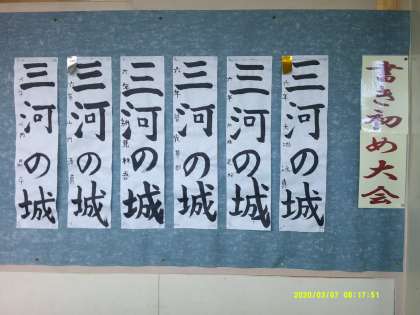 書き初め大会
三河の城
三河の城
三河の城
三河の城
三河の城
三河の城
2020/03/07 08:17:51